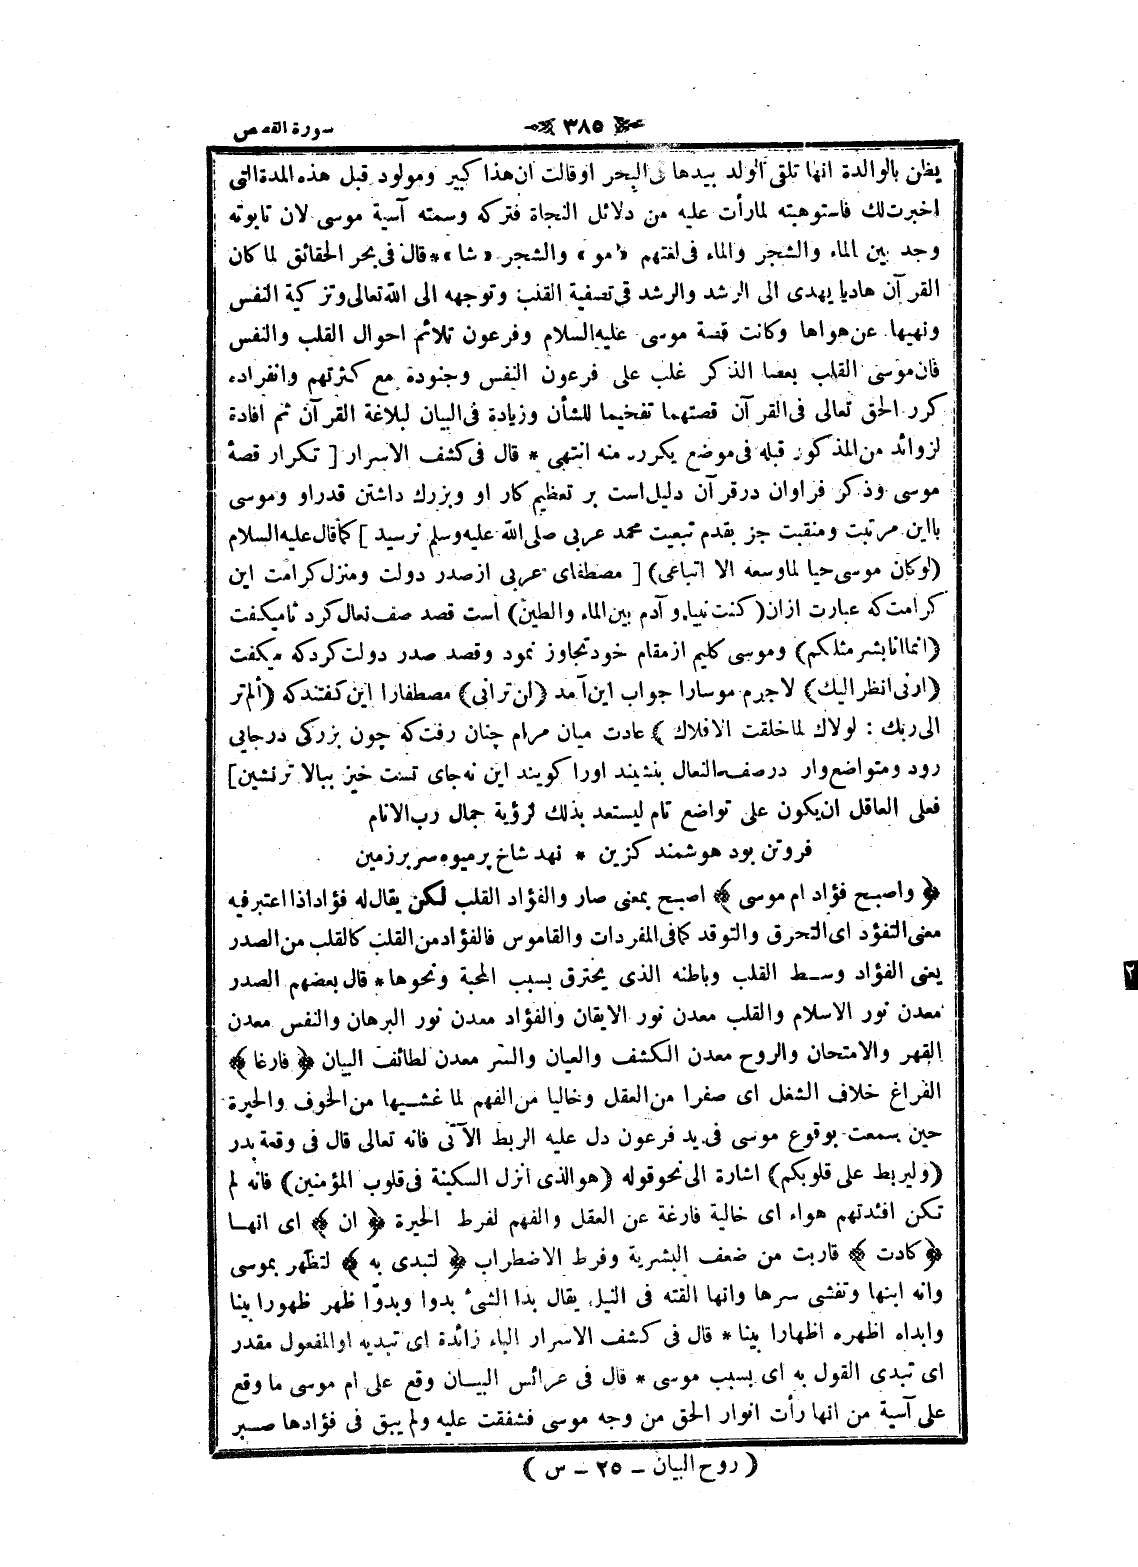 ﴿ ٣٨٥ ﴾ سورة القصص
يظن بالوالدة انها تلقى الولد بيدها فى البحر او قالت ان هذا كبير ومولود قبل هذه المدة التى
اخبرت لك فاستوهبته لما رأت عليه من دلائل النجاة فتركه وسمته آسية موسى لان تابوته
وجد بين الماء والشجر والماء فى لغتهم «مو» والشجر «شا» * قال فى بحر الحقائق لما كان
القرآن هاديا يهدى الى الرشد والرشد فى تصفية القلب وتوجهه الى الله تعالى وتزكية النفس
ونهيها عن هواها وكانت قصة موسى عليه السلام وفرعون تلائم احوال القلب والنفس
فان موسى القلب بعصا الذكر غلب على فرعون النفس وجنوده مع كثرتهم وانفراده
كرر الحق تعالى فى القرآن قصتهما تفخيما للشأن وزيادة فى البيان لبلاغة القرآن ثم افادة
لزوائد من المذكور قبله فى موضع يكرره منه انتهى * قال فى كشف الاسرار [ تكرار قصهٔ
موسى وذكر فراوان در قرآن دليل است بر تعظيم كار او وبزرك داشتن قدر او وموسى
با اين مرتبت ومنقبت جز بقدم تبعيت محمد عربى صلى الله عليه وسلم نرسيد ] كما قال عليه السلام
(لو كان موسى حيا لما وسعه الا اتباعى) [ مصطفاى عربى از صدر دولت ومنزل كرامت اين
كرامت كه عبارت از ان (كنت نبيا وآدم بين الماء والطين) است قصد صف نعال كرد تا ميكفت
(انما انا بشر مثلكم) وموسى كليم از مقام خود تجاوز نمود وقصد صدر دولت كرد كه ميكفت
(ارنى انظر اليك) لا جرم موسا را جواب اين آمد (لن ترانى) مصطفا را اين كفتند كه (ألم تر
الى ربك : لولاك لما خلقت الافلاك) عادت ميان مرام چنان رفت كه چون بزركى در جايى
رود ومتواضع وار در صف النعال بنشيند اورا كويند اين نه جاى تست خيز ببالا تر نشين]
فعلى العاقل ان يكون على تواضع تام ليستعد بذلك لرؤية جمال رب الانام
فروتن بود هوشمند كزين * نهد شاخ پر ميوه سر بر زمين
﴿ واصبح فؤاد ام موسى ﴾ اصبح بمعنى صار والفؤاد القلب لكن يقال له فؤاد اذا اعتبر فيه
معنى التفؤد اى التحرق والتوقد كما فى المفردات والقاموس فالفؤاد من القلب كالقلب من الصدر
يعنى الفؤاد وسط القلب وباطنه الذى يحترق بسبب المحبة ونحوها * قال بعضهم الصدر
معدن نور الاسلام والقلب معدن نور الايقان والفؤاد معدن نور البرهان والنفس معدن
القهر والامتحان والروح معدن الكشف والعيان والسر معدن لطائف البيان ﴿ فارغا ﴾
الفراغ خلاف الشغل اى صفرا من العقل وخاليا من الفهم لما غشيها من الخوف والحيرة
حين سمعت بوقوع موسى فى يد فرعون دل عليه الربط الآتى فانه تعالى قال فى وقعة بدر
(وليربط على قلوبكم) اشارة الى نحو قوله (هو الذى انزل السكينة فى قلوب المؤمنين) فانه لم
تكن افئدتهم هواء اى خالية فارغة عن العقل والفهم لفرط الحيرة ﴿ ان ﴾ اى انها
﴿ كادت ﴾ قاربت من ضعف البشرية وفرط الاضطراب ﴿ لتبدى به ﴾ لتظهر بموسى
وانه ابنها وتفشى سرها وانها القته فى النيل يقال بدا الشئ بدوا وبدوّا ظهر ظهورا بينا
وابداه اظهره اظهارا بينا * قال فى كشف الاسرار الباء زائدة اى تبديه او المفعول مقدر
اى تبدى القول به اى بسبب موسى * قال فى عرائس البيان وقع على ام موسى ما وقع
على آسية من انها رأت انوار الحق من وجه موسى فشفقت عليه ولم يبق فى فؤادها صبر
( روح البيان – ٢٥ – س )
٢